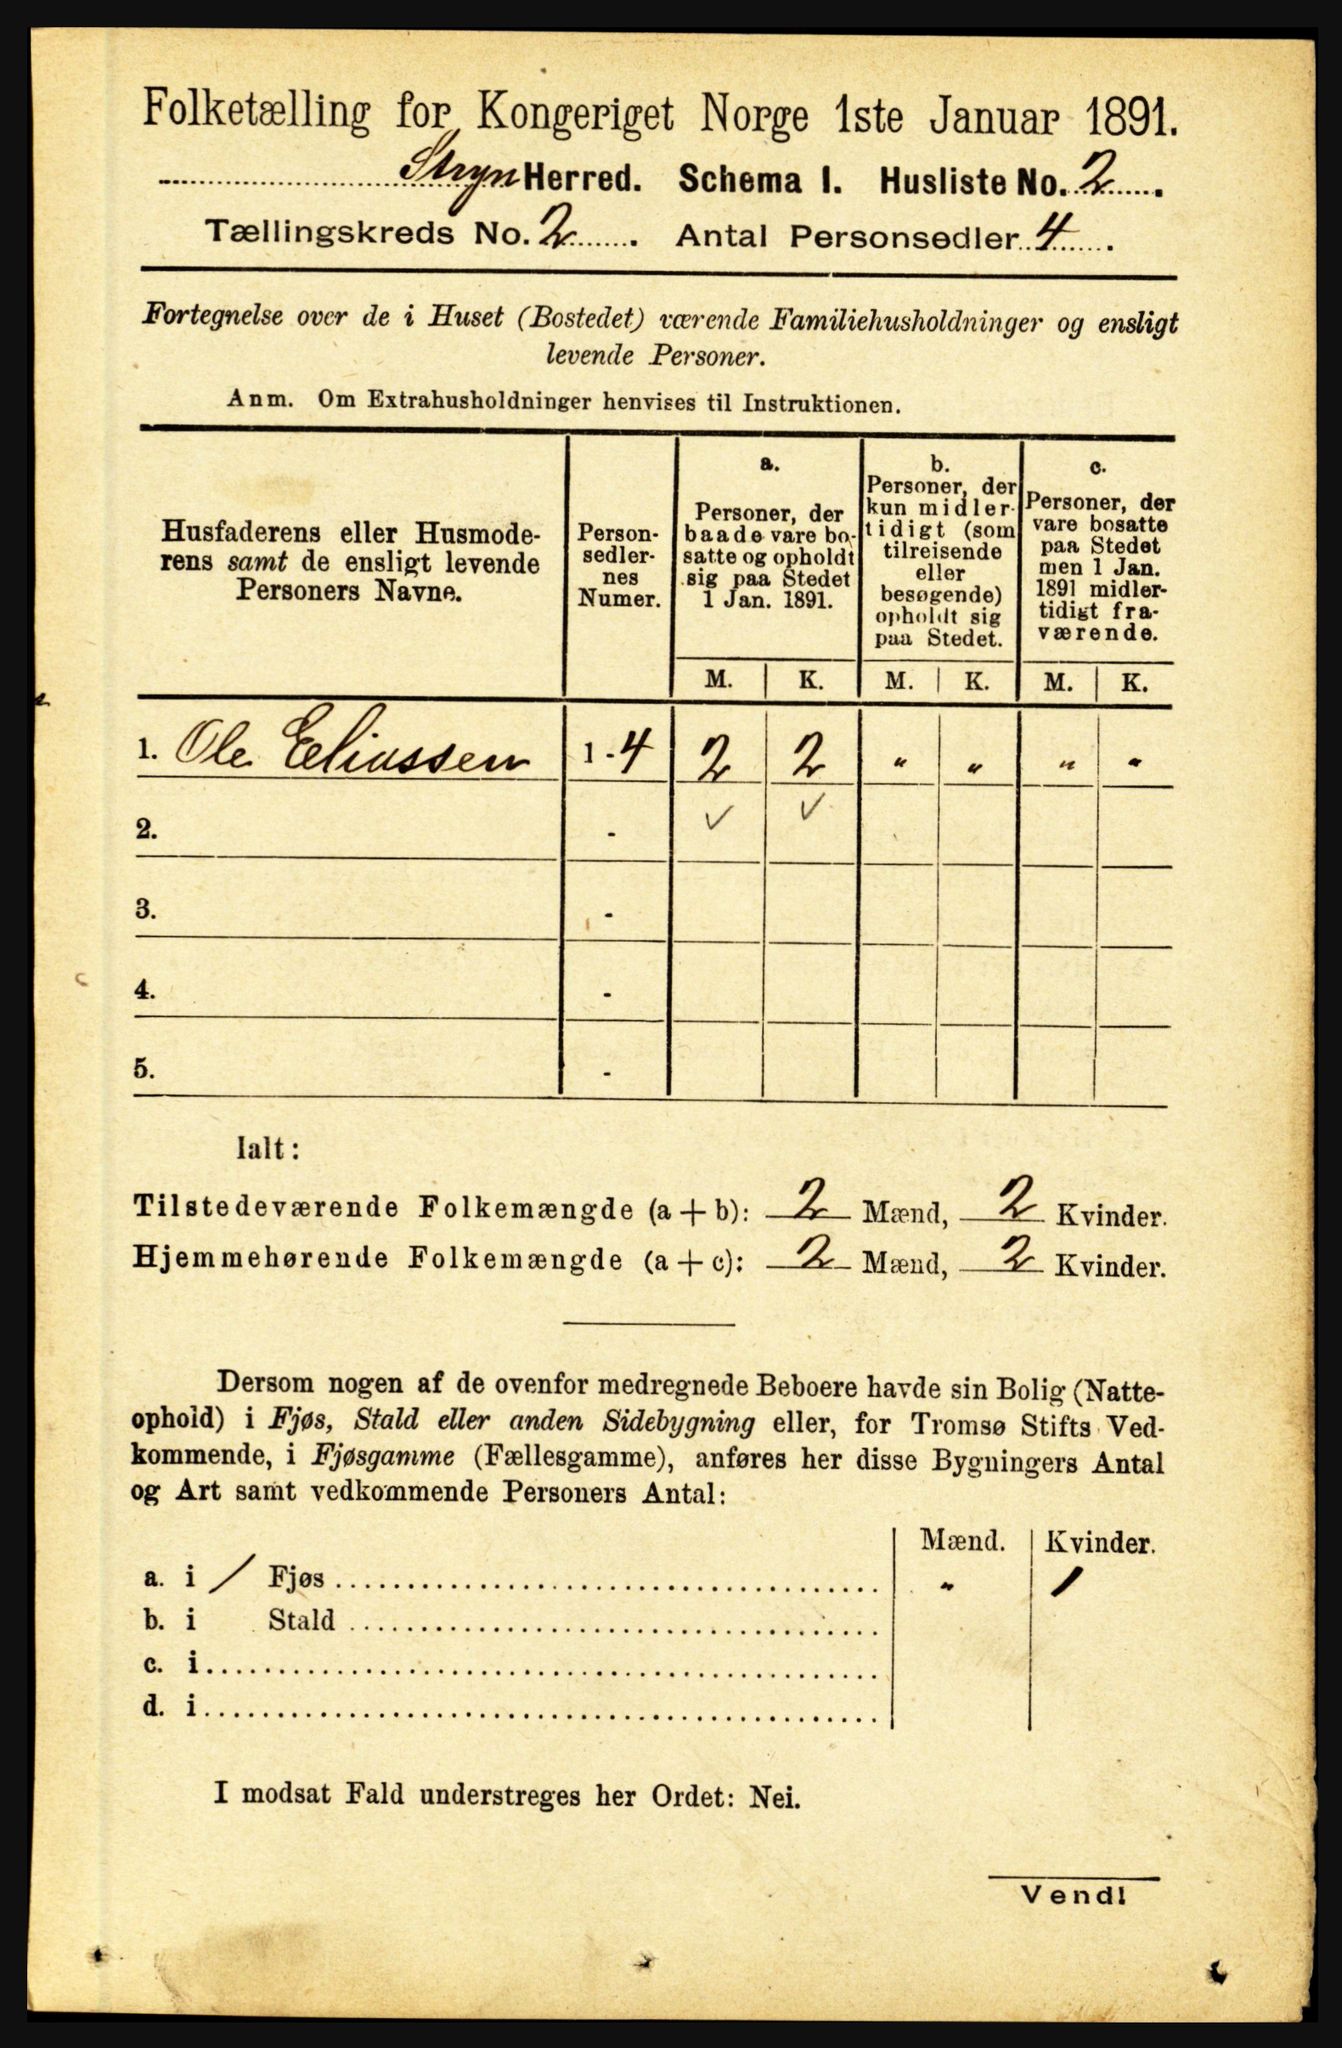 Folketælling for Kongeriget Norge 1ste Januar 1891.
Stryn Herred. Schema I. Husliste No. 2.
Tællingskreds No. 2. Antal Personsedler 4.
Fortegnelse over de i Huset (Bostedet) værende Familiehusholdninger og ensligt
levende Personer.
Anm. Om Extrahusholdninger henvises til Instruktionen.
Husfaderens eller Husmode-
rens samt de ensligt levende
Personers Navne.
Person-
sedler-
nes
Numer.
a.
Personer, der
baade vare bo-
satte og opholdt
sig paa Stedet
1 Jan. 1891.
b.
Personer, der
kun midler-
tidigt (som
tilreisende
eller
besøgende)
opholdt sig
paa Stedet.
c.
Personer, der
vare bosatte
paa Stedet
men 1 Jan.
1891 midler-
tidigt fra-
værende.
M. K. M. K. M. K.
1. Ole Eliassen 1-4 2 2 " " " "
2. - ✓ ✓
3. -
4. -
5. -
Ialt:
Tilstedeværende Folkemængde (a + b): 2 Mænd, 2 Kvinder.
Hjemmehørende Folkemængde (a + c): 2 Mænd, 2 Kvinder.
Dersom nogen af de ovenfor medregnede Beboere havde sin Bolig (Natte-
ophold) i Fjøs, Stald eller anden Sidebygning eller, for Tromsø Stifts Ved-
kommende, i Fjøsgamme (Fællesgamme), anføres her disse Bygningers Antal
og Art samt vedkommende Personers Antal:
Mænd. Kvinder.
a. i / Fjøs " 1
b. i Stald
c. i
d. i
I modsat Fald understreges her Ordet: Nei.
Vend!